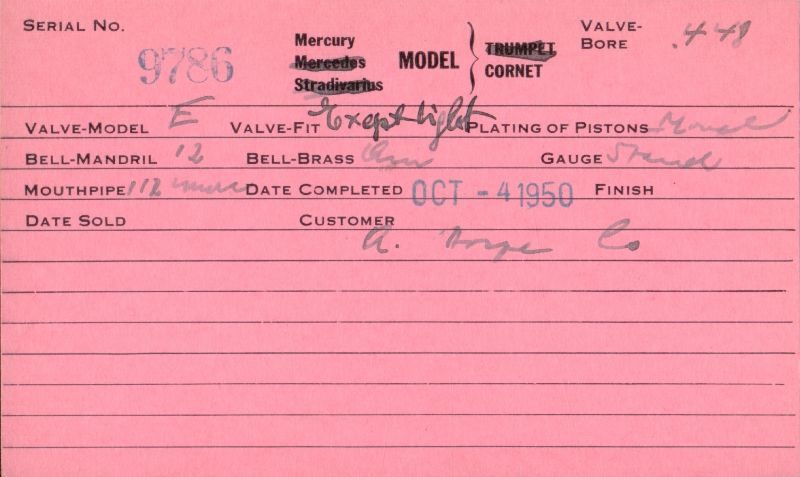 SERIAL NO. 9786 Mercury Mercedes Stradivarius MODEL TRUMPET CORNET VALVE-BORE .448
VALVE-MODEL E VALVE-FIT Exept tight PLATING OF PISTONS Monel
BELL-MANDRIL 12 BELL-BRASS GAUGE Stand
MOUTHPIPE 112 DATE COMPLETED OCT -4 1950 FINISH
DATE SOLD CUSTOMER
A. Co